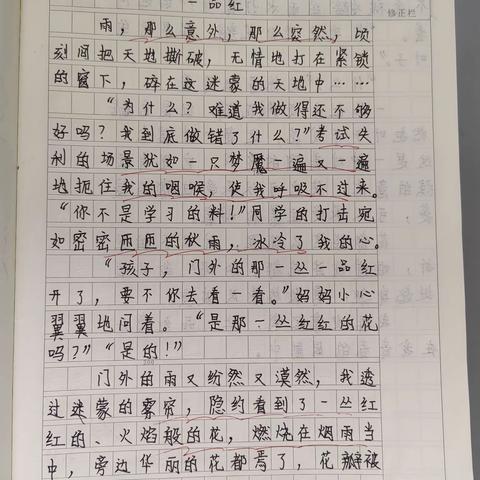 一品红
修正栏
雨，那么意外，那么突然，顷
刻间把天地撕破，无情地打在紧锁
的窗下，碎在这迷蒙的天地中……
“为什么？难道我做得还不够
好吗？我到底做错了什么？”考试失
利的场景犹如一只梦魇一遍又一遍
地扼住我的咽喉，使我呼吸不过来。
“你不是学习的料！”同学的打击宛
如密密匝匝的秋雨，冰冷了我的心。
“孩子，门外的那一丛一品红
开了，要不你去看一看。”妈妈小心
翼翼地问着。“是那一丛红红的花
吗？”“是的！”
门外的雨又纷然又漠然，我透
过迷蒙的雾帘，隐约看到了一丛红
红的、火焰般的花，燃烧在烟雨当
中，旁边华丽的花都焉了，花瓣被